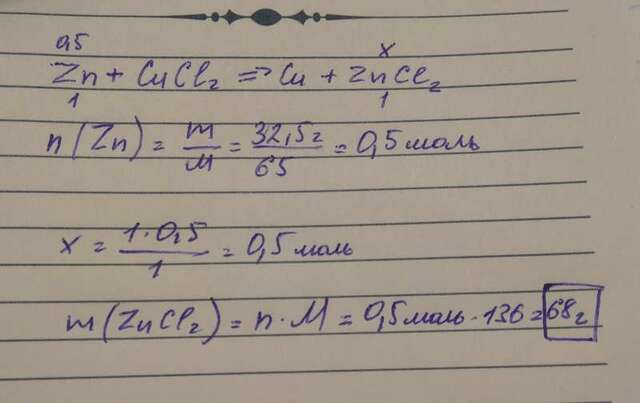 0,5 x
Zn + CuCl₂ => Cu + ZnCl₂
1 1
n(Zn) = m/M = 32,5г/65 = 0,5 моль
x = 1·0,5/1 = 0,5 моль
m(ZnCl₂) = n·M = 0,5 моль · 136 = 68г